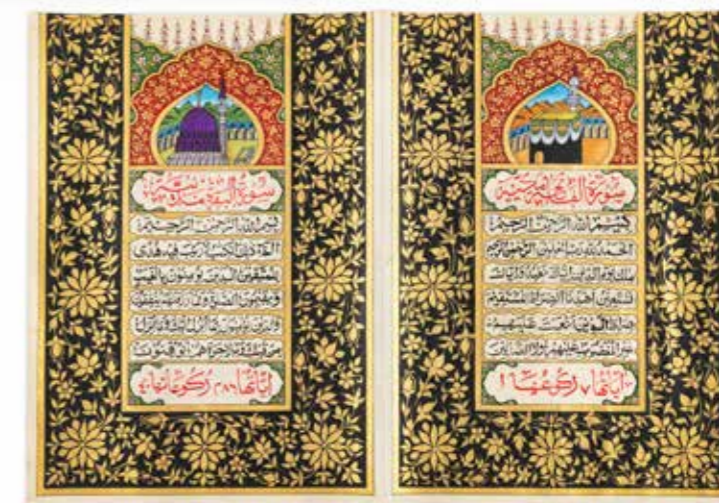 سورة الفاتحة
بسم الله الرحمن الرحيم
الحمد لله رب العلمين الرحمن الرحيم
ملك يوم الدين اياك نعبد واياك
نستعين اهدنا الصراط المستقيم
صراط الذين انعمت عليهم
غير المغضوب عليهم ولا الضالين
اياتها ٧ ركوعها ١
سورة البقرة مدنية
بسم الله الرحمن الرحيم
الم ذلك الكتب لا ريب فيه هدى
للمتقين الذين يؤمنون بالغيب
ويقيمون الصلوة ومما رزقنهم ينفقون
والذين يؤمنون بما انزل اليك وما انزل
من قبلك وبالاخرة هم يوقنون
اياتها ٢٨٦ ركوعاتها ٤٠